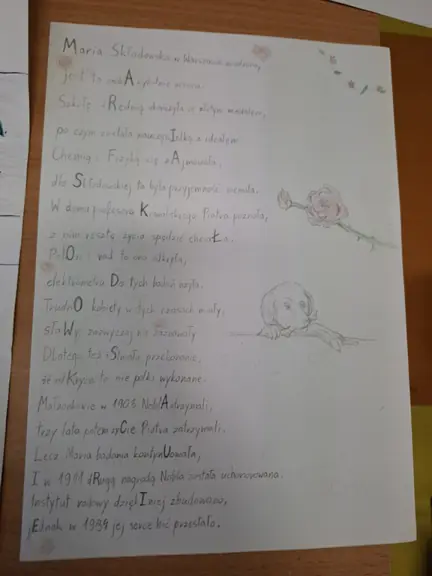 Maria Skłodowska w Warszawie urodzona,
jest to osoba wybitnie
Szkołę Rednią skończyła z złotym medalem,
po czym została nauczycIelką z ideałem.
Chemią i Fizyką się zAjmowała,
dla Skłodowskiej to była przyjemność niemała.
W domu profesora Kowalskiego Piotra poznała,
z nim resztę życia spędzić chciaŁa.
PolOn i rad to ona odkryła,
elektrometru Do tych badań użyła.
TrudnO kobiety w tych czasach miały,
słaWy zazwyczaj nie
Dlatego też Śmiało przekonano,
że odKrycia te nie przez nią wykonane.
Małżonkowie w 1903 NoblA otrzymali,
trzy lata potem żyCie Piotra zatrzymali.
Lecz Maria badania kontynUowała,
I w 1911 dRugą nagrodą Nobla została uhonorowana.
Instytut radowy dzięki nIej zbudowano,
jEdnak w 1934 jej serce bić przestało.